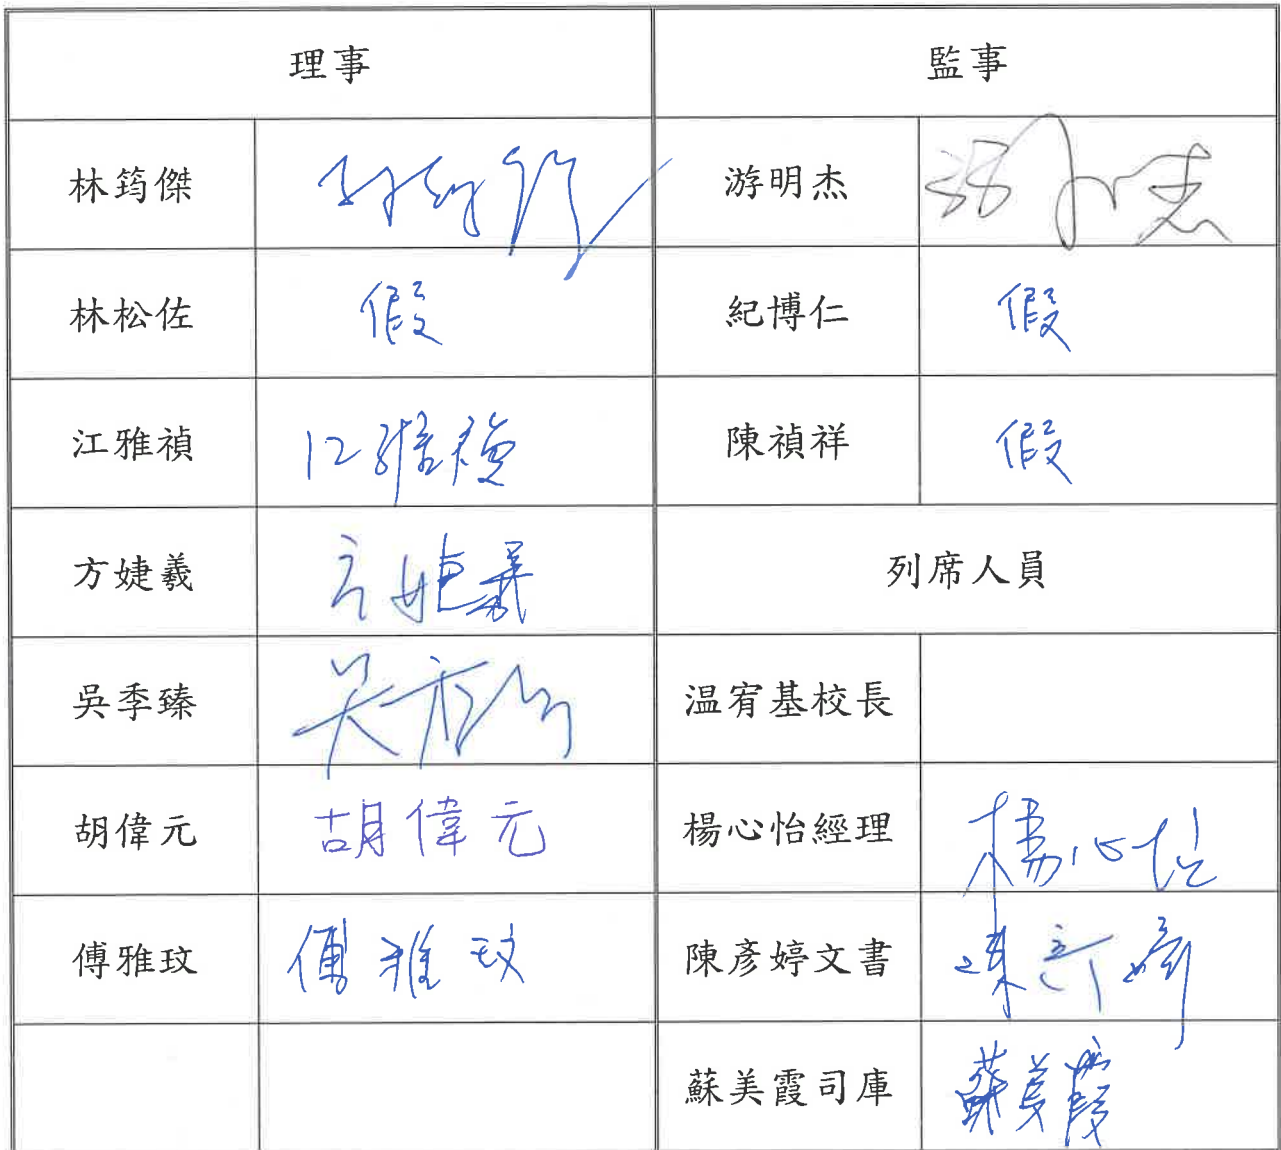 理事 監事
林筠傑 林筠傑 游明杰 游明杰
林松佐 假 紀博仁 假
江雅禎 江雅禎 陳禎祥 假
方婕羲 方婕羲 列席人員
吳季臻 吳季臻 温宥基校長
胡偉元 胡偉元 楊心怡經理 楊心怡
傅雅玟 傅雅玟 陳彥婷文書 陳彥婷
蘇美霞司庫 蘇美霞